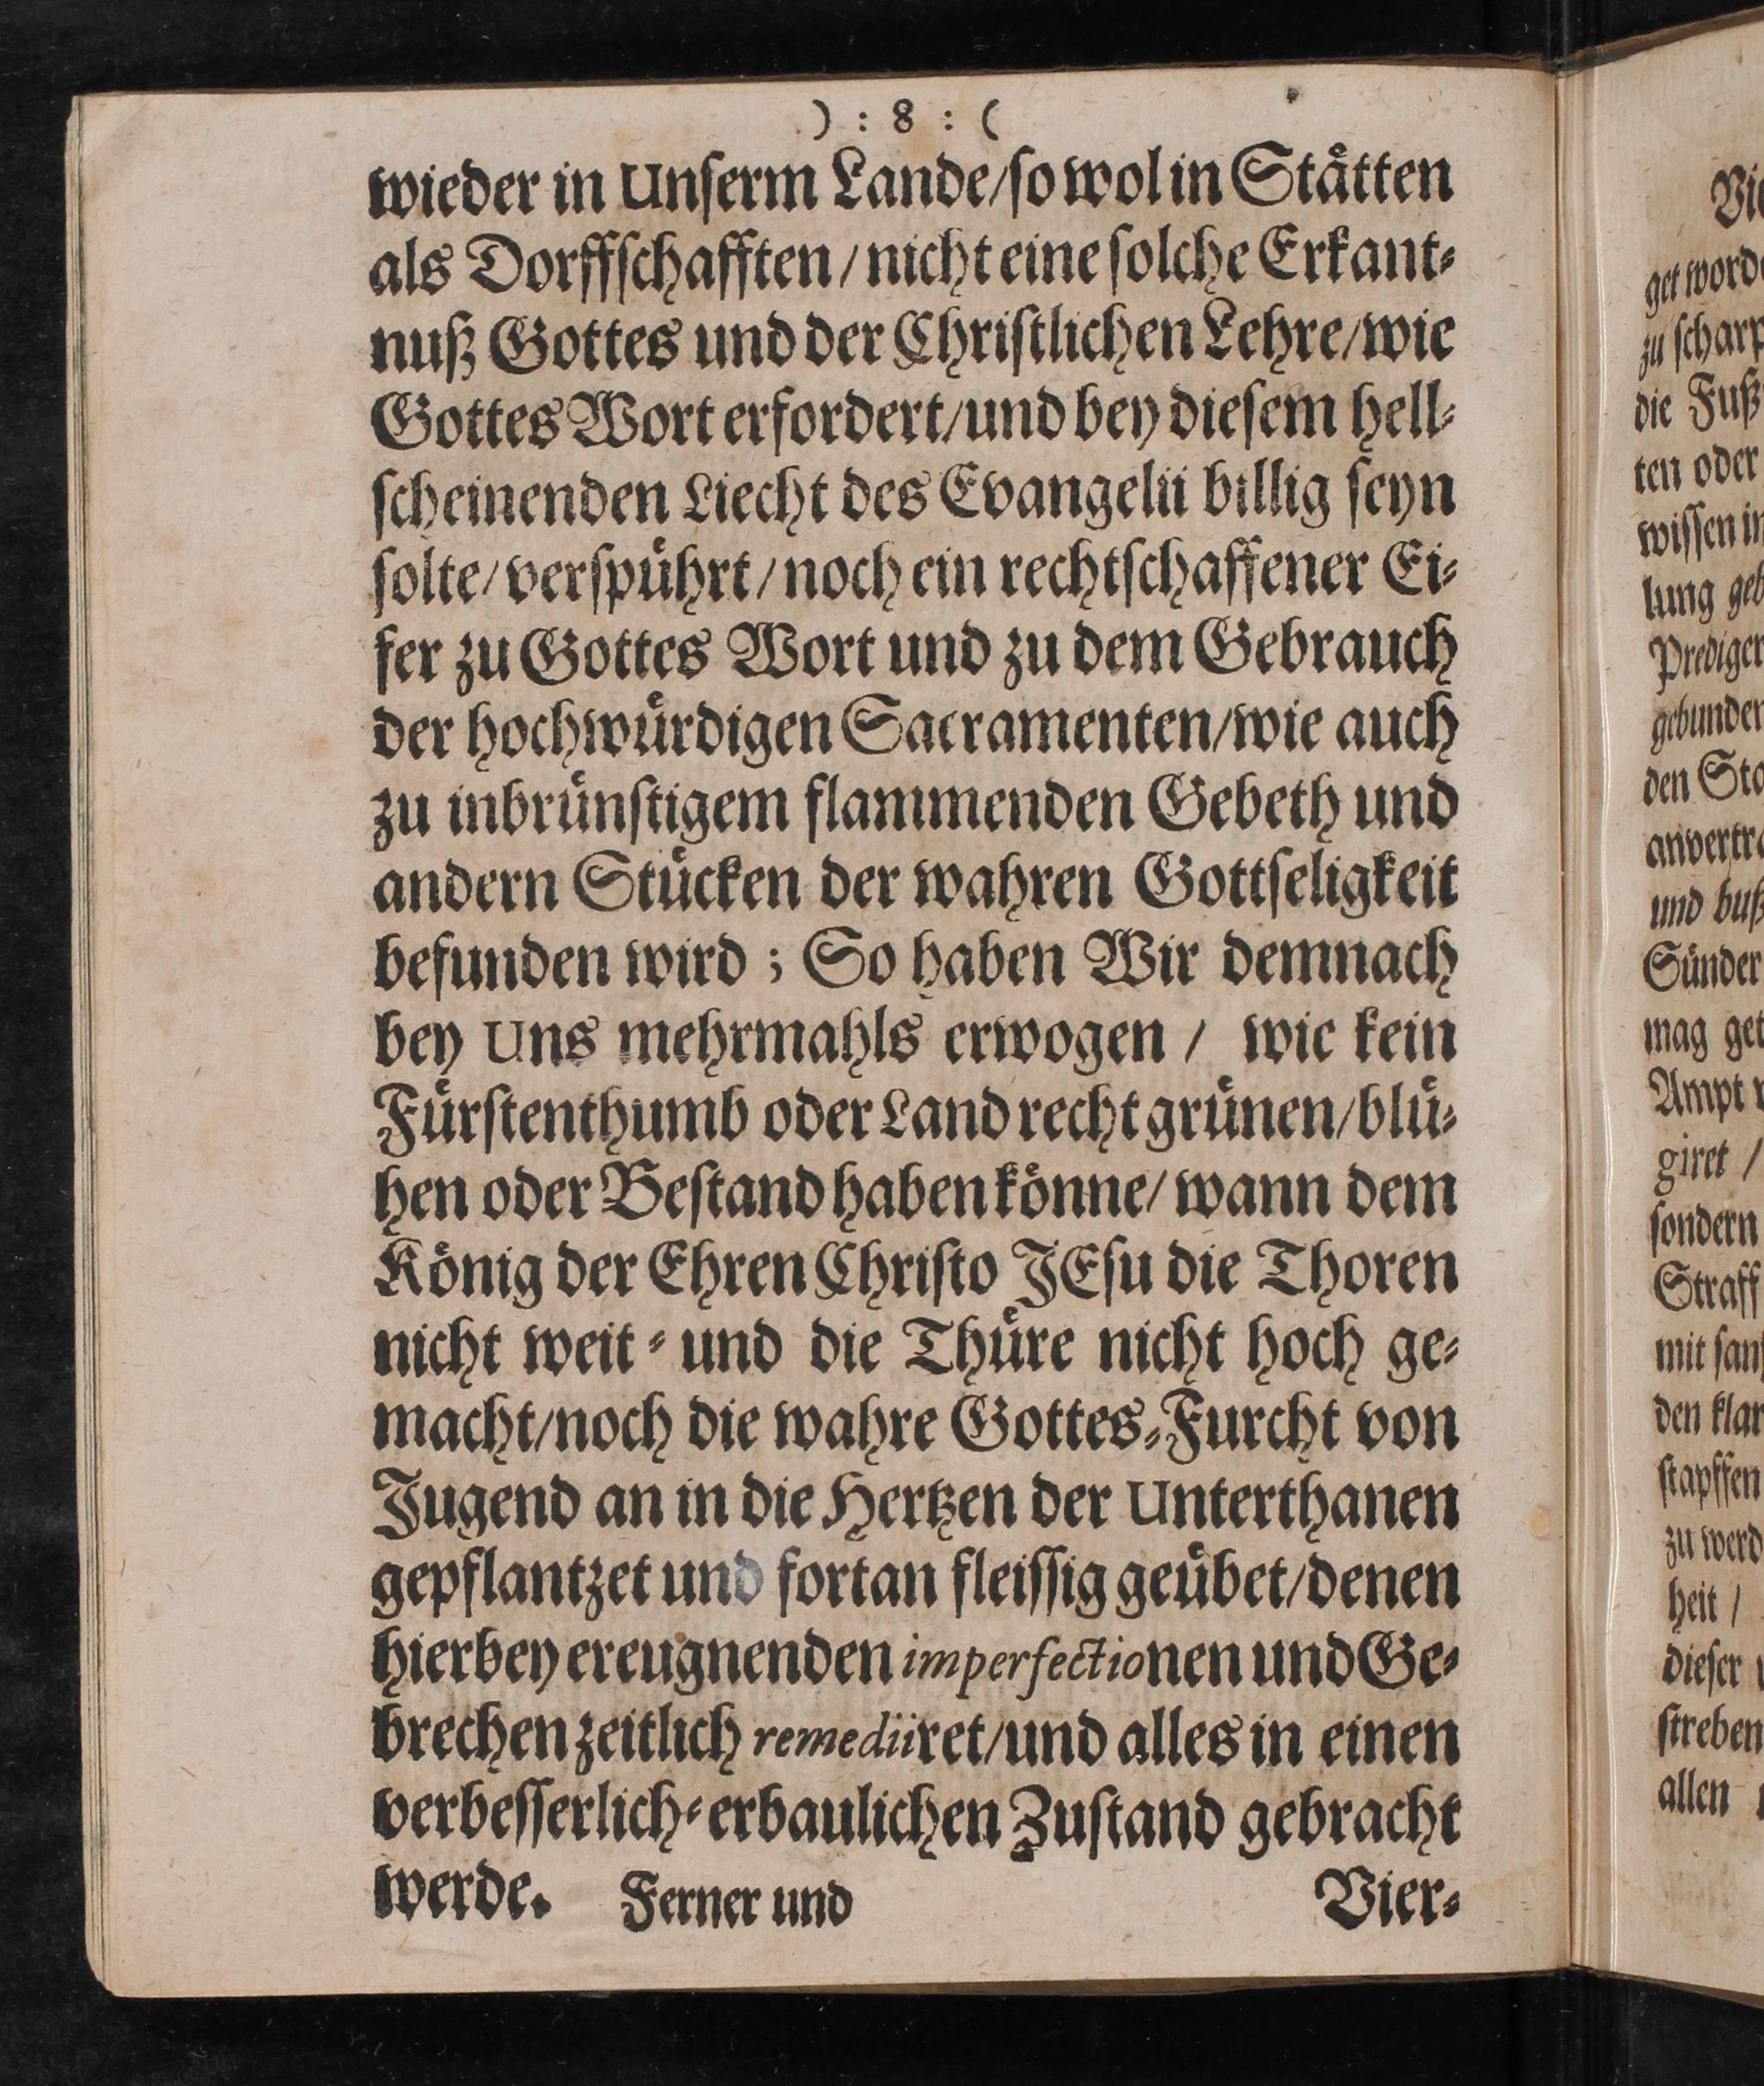 ) : 8 : (
wieder in Unſerm Lande/ſo wol in Staͤtten
als Dorffſchafften / nicht eine ſolche Erkant⸗
nuß Gottes und der Chriſtlichen Lehre/wie
Gottes Wort erfordert/und bey dieſem hell⸗
ſcheinenden Liecht des Evangelii billig ſeyn
ſolte/verſpuͤhrt/noch ein rechtſchaffener Ei⸗
fer zu Gottes Wort und zu dem Gebrauch
der hochwuͤrdigen Sacramenten/wie auch
zu inbruͤnſtigem flammenden Gebeth und
andern Stuͤcken der wahren Gottſeligkeit
befunden wird ; So haben Wir demnach
bey Uns mehrmahls erwogen / wie kein
Fuͤrſtenthumb oder Land recht gruͤnen/bluͤ⸗
hen oder Beſtand haben koͤnne/ wann dem
Koͤnig der Ehren Chriſto JEſu die Thoren
nicht weit⸗ und die Thuͤre nicht hoch ge⸗
macht/noch die wahre Gottes⸗Furcht von
Jugend an in die Hertzen der Unterthanen
gepflantzet und fortan fleiſſig geuͤbet/denen
hierbey ereugnenden imperfectionen und Ge⸗
brechen zeitlich remediiret/und alles in einen
verbeſſerlich⸗erbaulichen Zuſtand gebracht
werde. Ferner und Vier⸗
get
zu
die Fuß
ten oder
wiſſen
lung
Prediger
den
und
Sünder
mag
Ampt
giret /
ſondern
Straff
mit
den
ſtapffen
zu
heit /
dieſer
ſtreben
allen